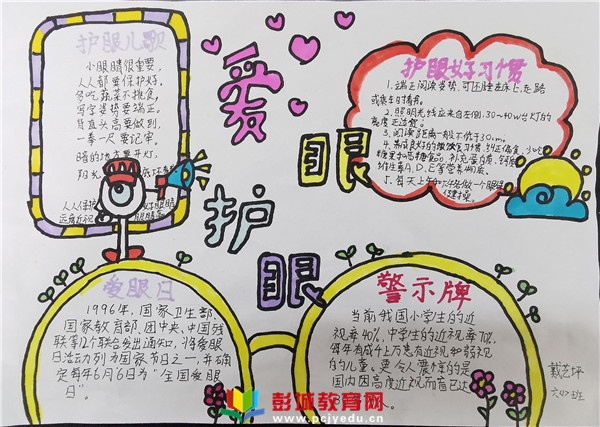 护眼儿歌
小眼睛很重要,
人人都要保护好。
多吃蔬菜不挑食,
写字姿势要端正。
背直头高要做到,
一拳一尺要记牢。
暗的地方要开灯,
人人保护
爱眼
护眼
护眼好习惯
1. 端正阅读姿势,可还睡在床上,走路
或乘车时看书。
2. 照明光线应来自左侧,30~40w台灯的
高度正适宜。
3. 阅读距离一般不低于30cm;
4. 养成良好的饮食习惯
5. 每天上午下午各做一个眼保
健操。
爱眼日
1996年,国家卫生部、
国家教育部、团中央、中国残
联等12个联合发出通知,将爱眼
日活动列为国家节日之一,并确
定每年6月6日为“全国爱眼
日”。
警示牌
当前我国小学生的近
视率40%,中学生的近视率70%,
每年有成千上万患有近视和弱视
的儿童。更令人震惊的是
国内因高度近视而盲已达
戴艺坪
六(2)班
彭城教育网
www.pcjyedu.cn